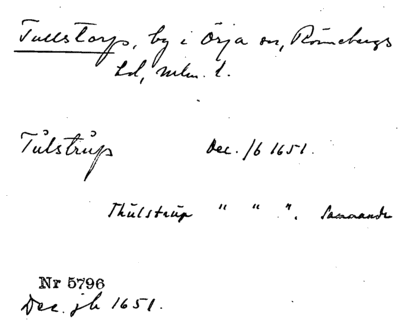 Tullstorp, by i Örja sn, Rönnebergs
hd, Mlm. l.
Tůlstrůp Dec. jb 1651.
Thůlstrůp " " ". Sammanda
Nr 5796
Dec. jb 1651.